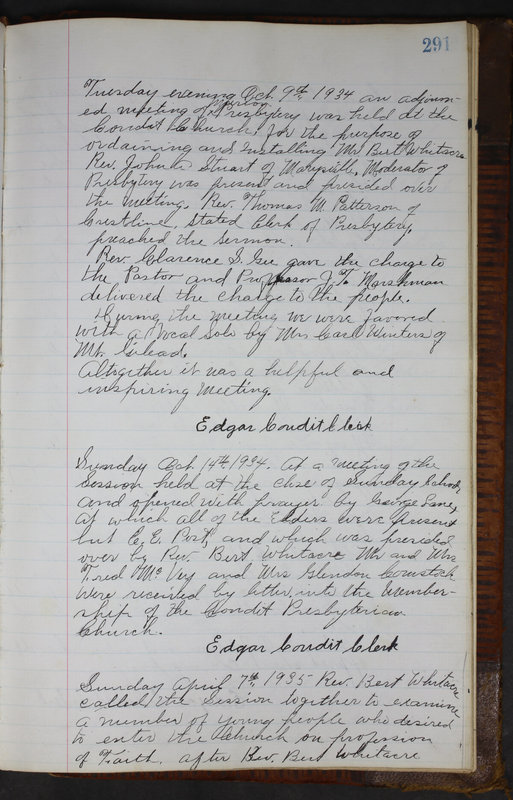 291
Tuesday evening Oct. 9th, 1934 an adjourn-
ed meeting of Marion Presbytery was held at the
Condit Church for the purpose of
ordaining and installing Mr Bert Whitacre
Rev. John Stuart of Marysville, Moderator of
Presbytery was present and presided over
the meeting. Rev. Thomas M. Patterson of
Crestline, Stated Clerk of Presbytery,
preached the sermon.
Rev Clarence S. Gee gave the charge to
the Pastor and Professor J. T. Marshman
delivered the charge to the people.
During the meeting we were favored
with a Vocal Solo by Mrs Carl Winters of
Mt. Gilead.
Altogether it was a helpful and
inspiring meeting.
Edgar Condit Clerk
Sunday Oct. 14th 1934. At a meeting of the
Session held at the close of Sunday School,
and opened with prayer by George Lane,
at which all of the Elders were present
but C. E. Post, and which was presided
over by Rev. Bert Whitacre Mr and Mrs
Fred McVey and Mrs Glendon Comstock
were received by letter into the member-
ship of the Condit Presbyterian
Church.
Edgar Condit Clerk
Sunday April 7th, 1935 Rev. Bert Whitacre
called the Session together to examine
a number of young people who desired
to enter the Church on profession
of Faith. After Rev. Bert Whitacre